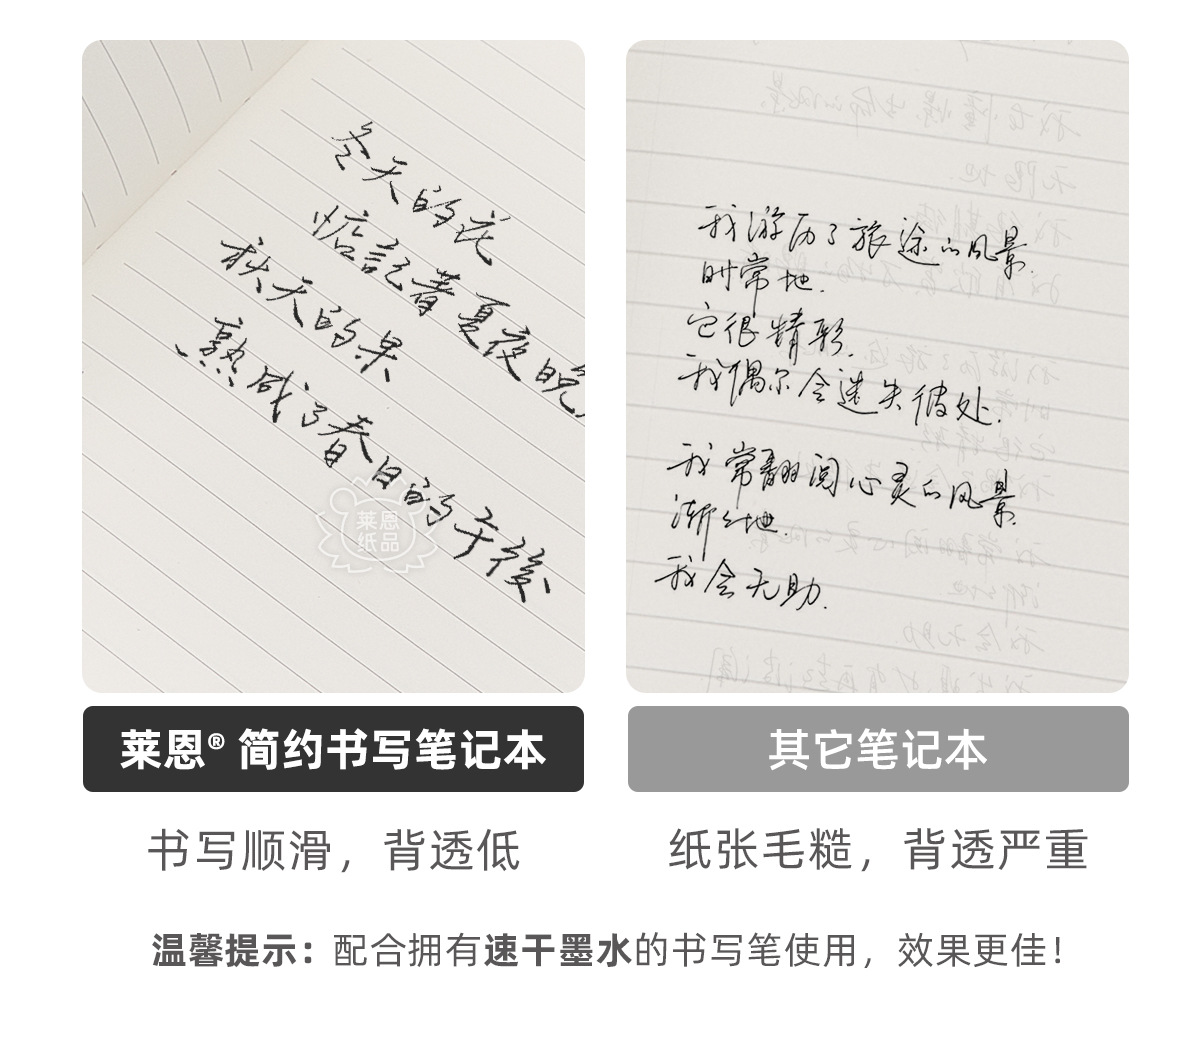 冬天的花
惦記著夏夜晚
秋天的果
熟成了春日的午後
莱恩
纸品
我游历了旅途的风景.
时常地.
它很精彩.
我偶尔会迷失彼处.
我常翻阅心灵的风景.
渐渐地.
我会无助.
莱恩® 简约书写笔记本
其它笔记本
书写顺滑，背透低
纸张毛糙，背透严重
温馨提示：配合拥有速干墨水的书写笔使用，效果更佳！